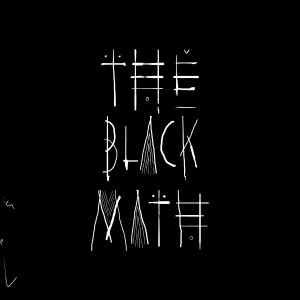 THE
BLACK
MATH